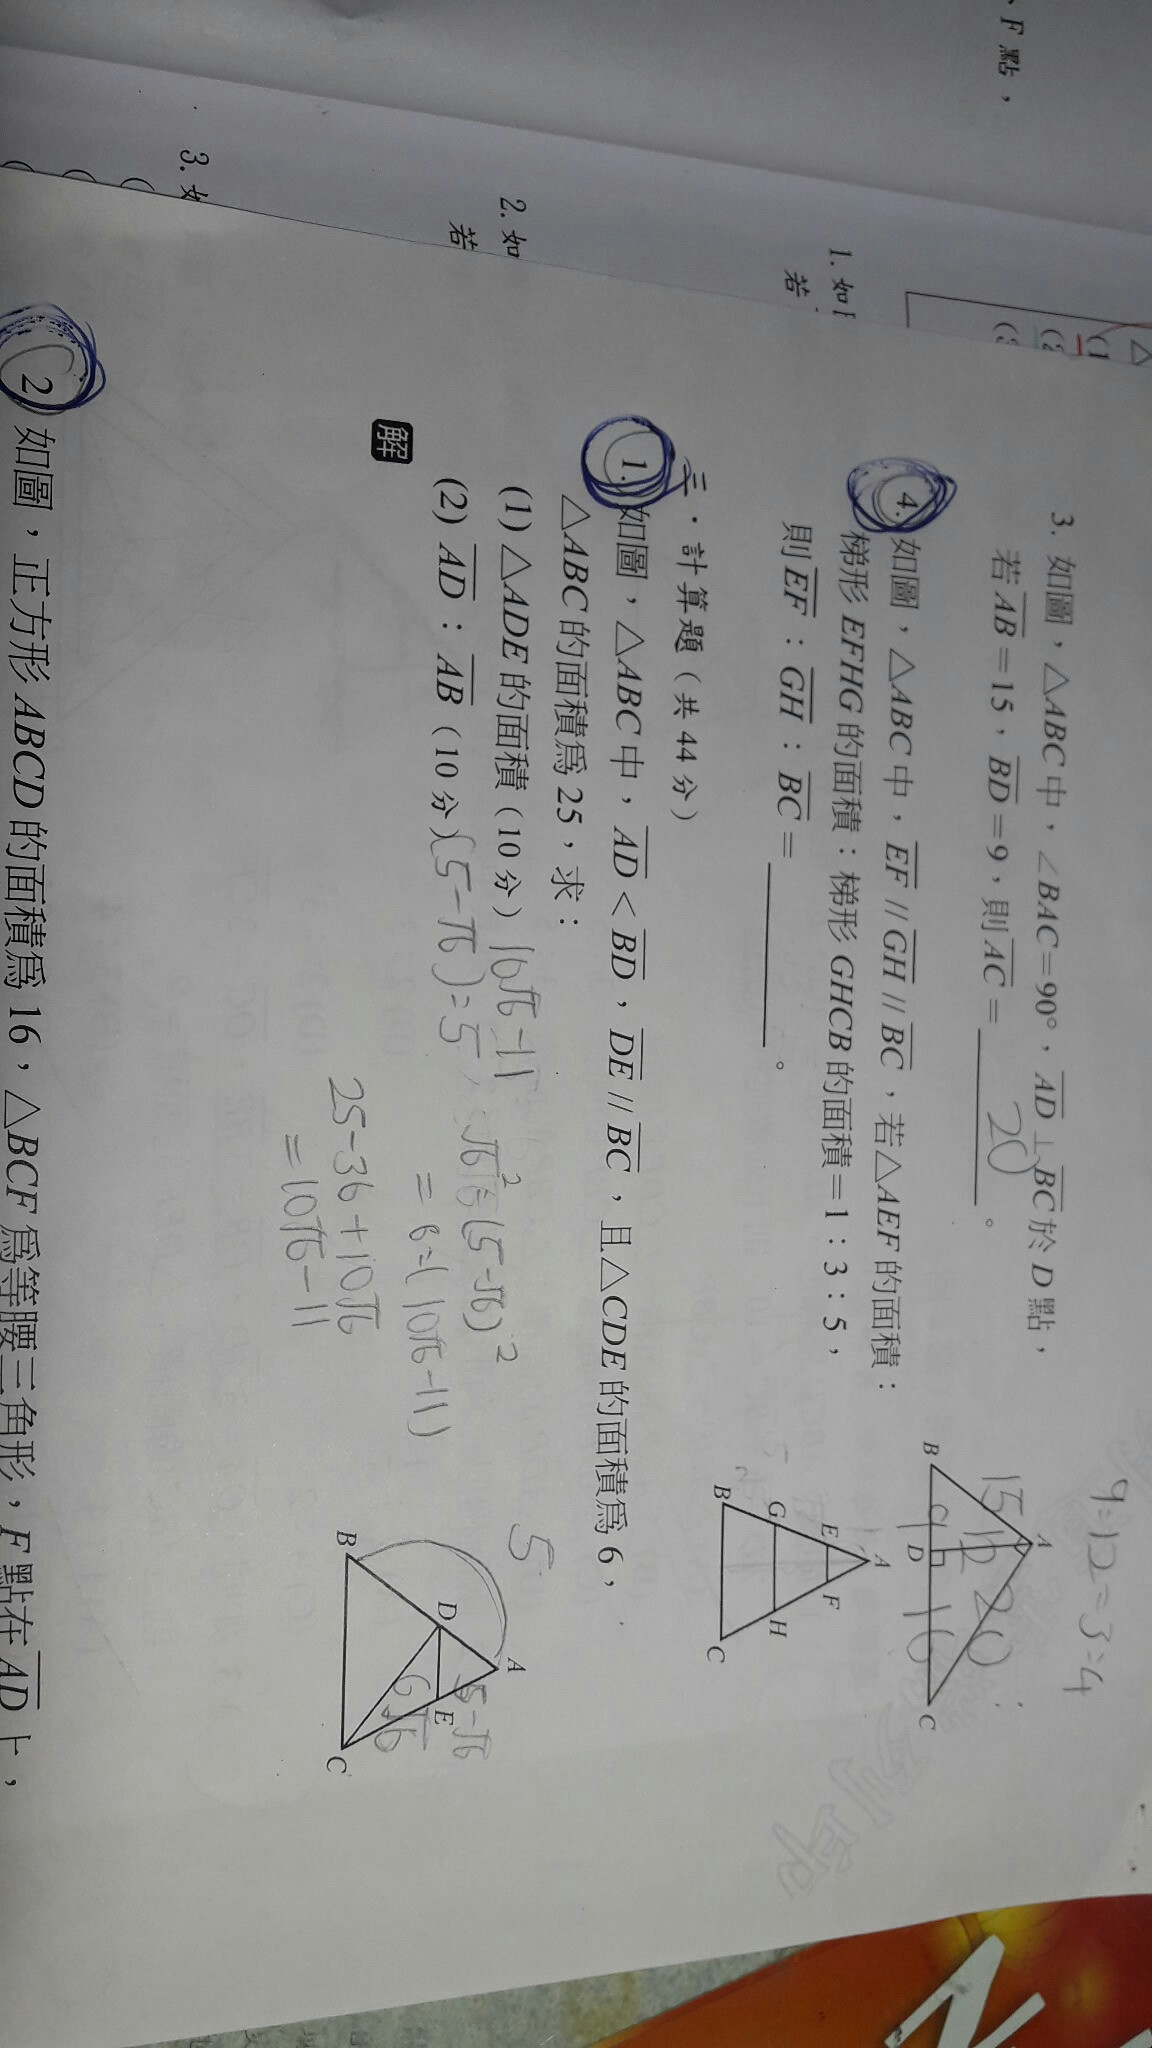 、F 點，
△
(1
(2
(3
1. 如
若
2. 如
若
3. 如
3. 如圖，△ABC中，∠BAC=90°，AD⊥BC於D點，
若AB=15、BD=9，則AC= 20 。
9:12=3:4
A
15
12
20
B
9
D
16
C
4. 如圖，△ABC中，EF//GH//BC，若△AEF的面積：
梯形EFHG的面積：梯形GHCB的面積=1：3：5，
則EF：GH：BC= 。
A
E
F
G
H
B
C
三．計算題（共44分）
1. 如圖，△ABC中，AD<BD，DE//BC，且△CDE的面積為6，
△ABC的面積為25，求：
(1) △ADE的面積（10分）
(2) AD：AB（10分）
解
(5-√6)=5
25-36+10√6
=10√6-11
5
A
5-√6
D
E
6
√6
B
C
2. 如圖，正方形ABCD的面積為16，△BCF為等腰三角形，F點在AD上，